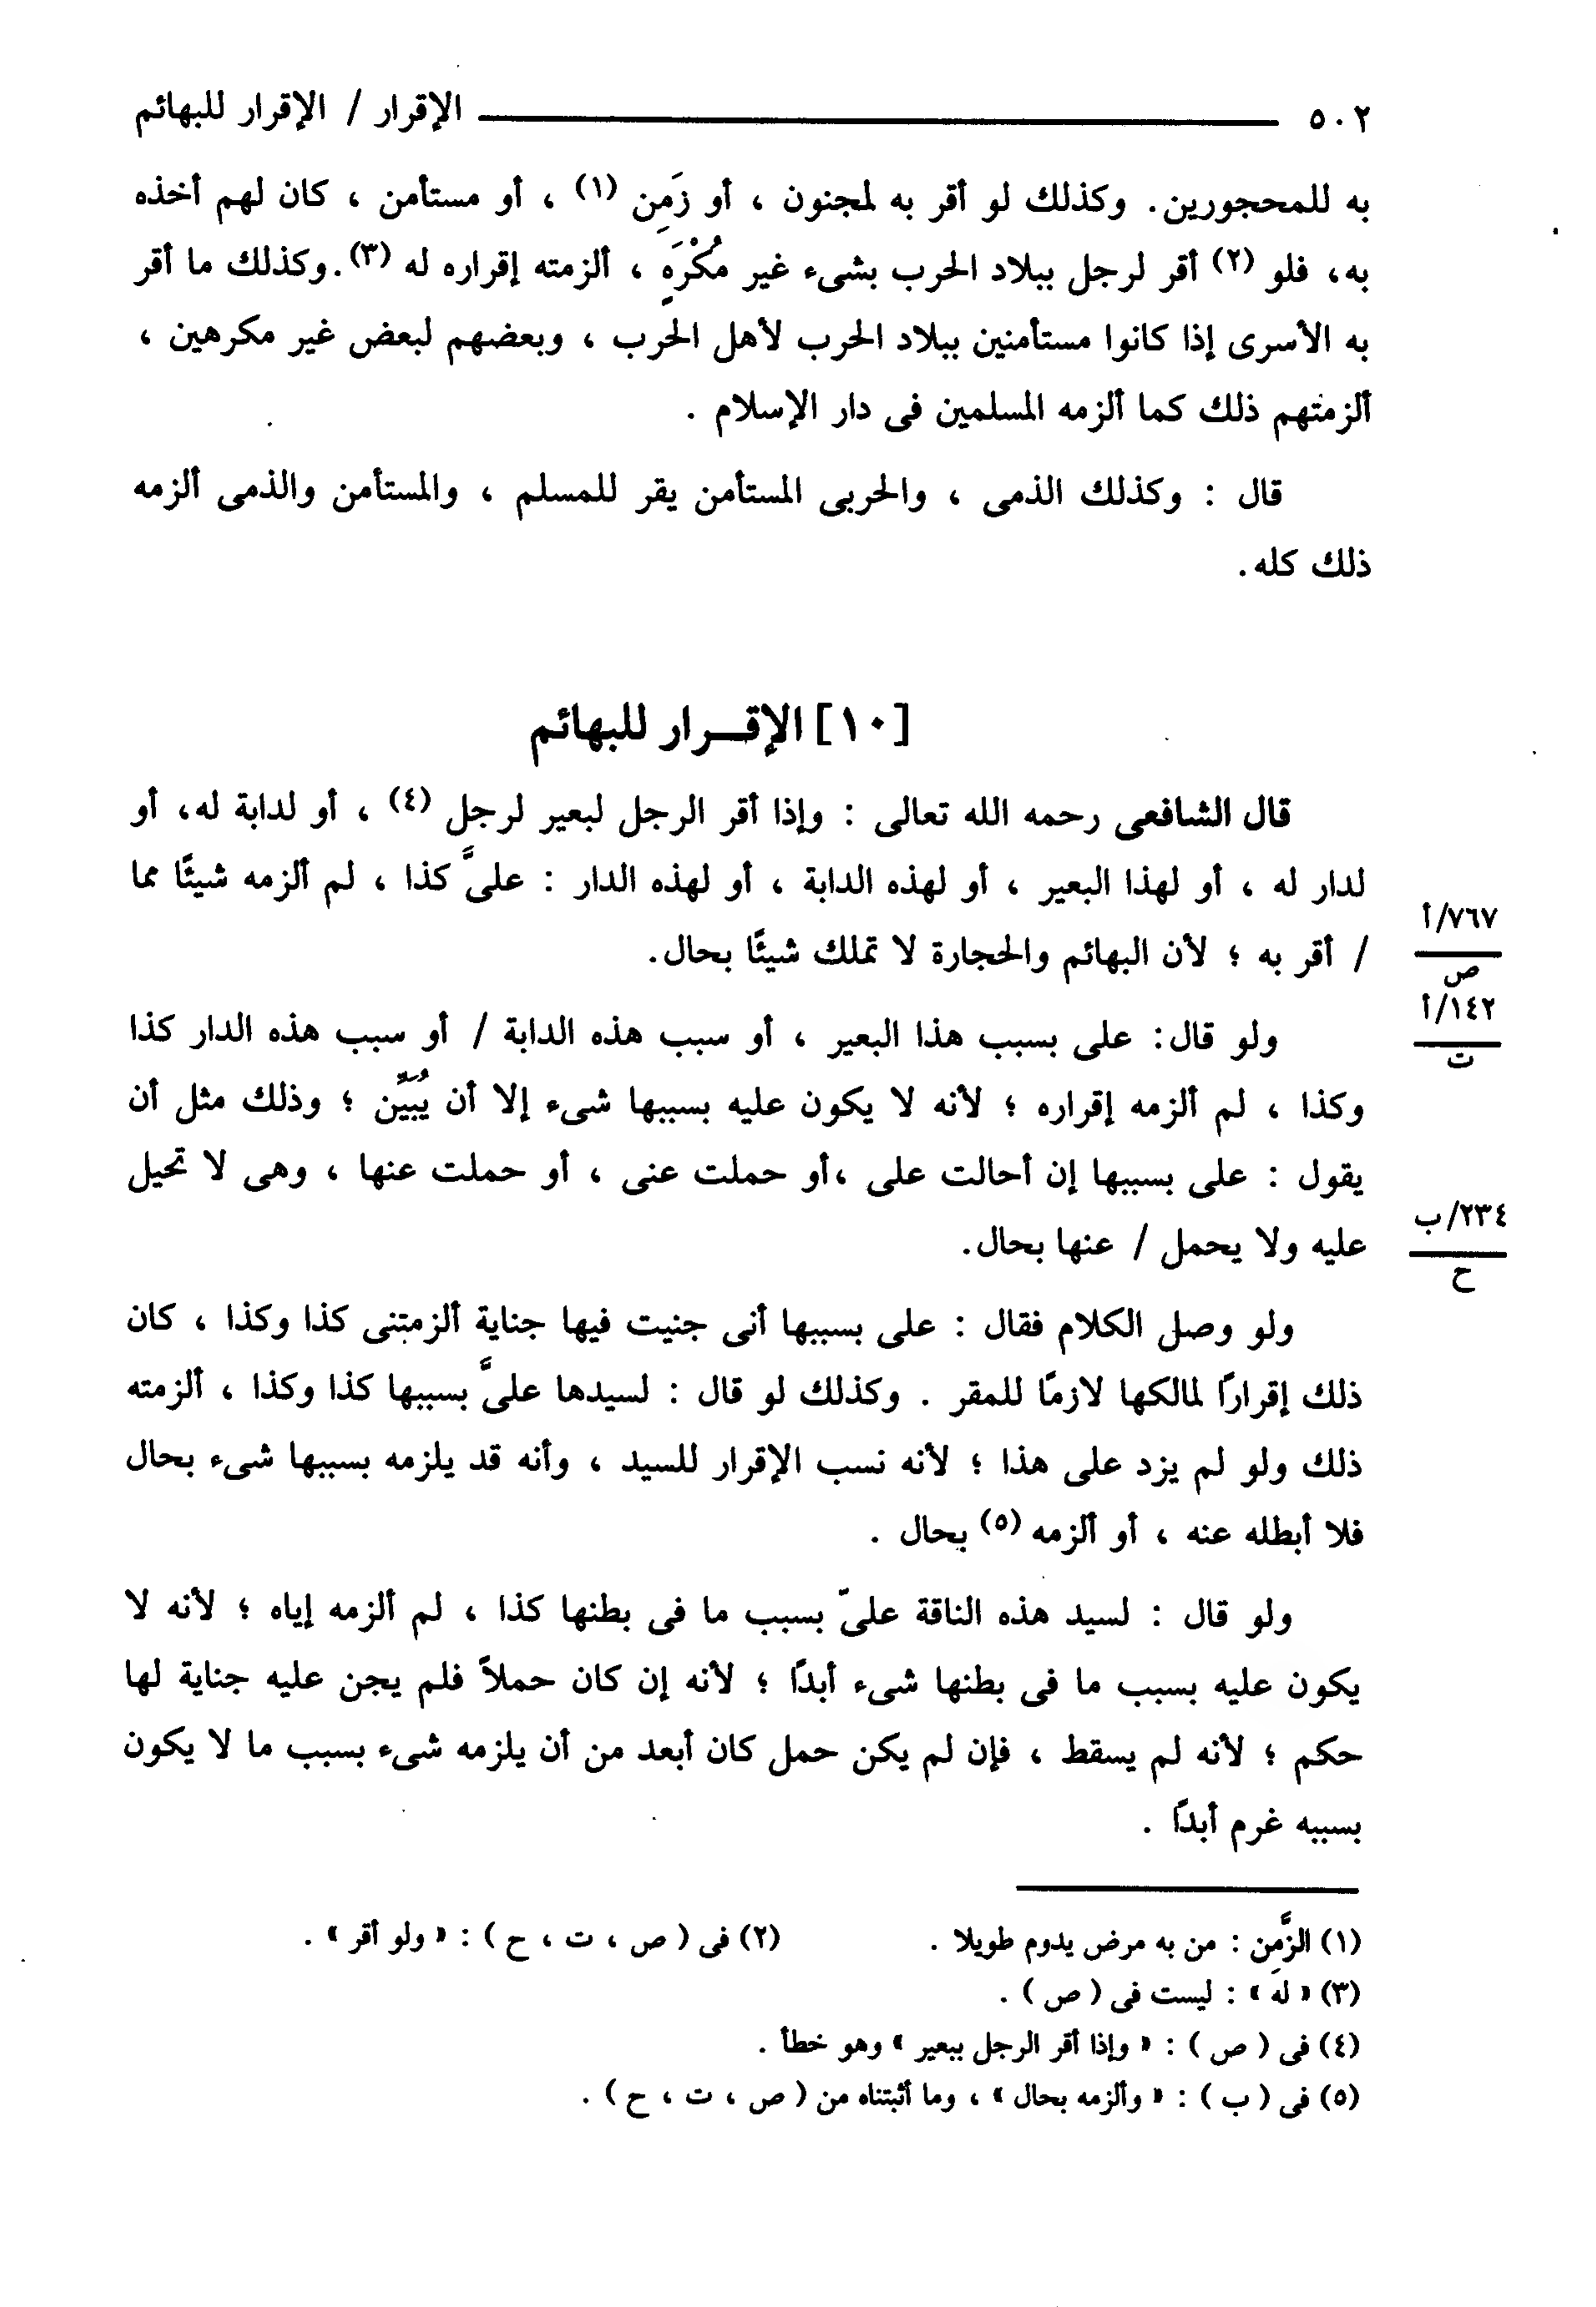 ٥٠٢ الإقرار / الإقرار للبهائم
به للمحجورين. وكذلك لو أقر به لمجنون ، أو زَمِن (١) ، أو مستأمن ، كان لهم أخذه
به، فلو (٢) أقر لرجل ببلاد الحرب بشىء غير مُكْرَهٍ ، ألزمته إقراره له (٣). وكذلك ما أقر
به الأسرى إذا كانوا مستأمنين ببلاد الحرب لأهل الحرب ، وبعضهم لبعض غير مكرهين ،
ألزمتهم ذلك كما ألزمه المسلمين فى دار الإسلام .
قال : وكذلك الذمى ، والحربى المستأمن يقر للمسلم ، والمستأمن والذمى ألزمه
ذلك كله.
[١٠] الإقــرار للبهائم
قال الشافعى رحمه الله تعالى : وإذا أقر الرجل لبعير لرجل (٤) ، أو لدابة له، أو
لدار له ، أو لهذا البعير ، أو لهذه الدابة ، أو لهذه الدار : علىَّ كذا ، لم ألزمه شيئًا مما
٧٦٧/أ
ص
/ أقر به ؛ لأن البهائم والحجارة لا تملك شيئًا بحال.
١٤٢/أ
ت
ولو قال: على بسبب هذا البعير ، أو سبب هذه الدابة / أو سبب هذه الدار كذا
وكذا ، لم ألزمه إقراره ؛ لأنه لا يكون عليه بسببها شىء إلا أن يُبَيِّن ؛ وذلك مثل أن
يقول : على بسببها إن أحالت على ،أو حملت عنى ، أو حملت عنها ، وهى لا تحيل
٢٣٤/ب
ح
عليه ولا يحمل / عنها بحال.
ولو وصل الكلام فقال : على بسببها أنى جنيت فيها جناية ألزمتنى كذا وكذا ، كان
ذلك إقرارًا لمالكها لازمًا للمقر . وكذلك لو قال : لسيدها علىَّ بسببها كذا وكذا ، ألزمته
ذلك ولو لم يزد على هذا ؛ لأنه نسب الإقرار للسيد ، وأنه قد يلزمه بسببها شىء بحال
فلا أبطله عنه ، أو ألزمه (٥) بحال .
ولو قال : لسيد هذه الناقة علىّ بسبب ما فى بطنها كذا ، لم ألزمه إياه ؛ لأنه لا
يكون عليه بسبب ما فى بطنها شىء أبدًا ؛ لأنه إن كان حملاً فلم يجن عليه جناية لها
حكم ؛ لأنه لم يسقط ، فإن لم يكن حمل كان أبعد من أن يلزمه شىء بسبب ما لا يكون
بسببه غرم أبدًا .
(١) الزَّمِن : من به مرض يدوم طويلا . (٢) فى ( ص ، ت ، ح ) : « ولو أقر » .
(٣) « له » : ليست فى ( ص ) .
(٤) فى ( ص ) : « وإذا أقر الرجل ببعير » وهو خطأ .
(٥) فى ( ب ) : « وألزمه بحال » ، وما أثبتناه من ( ص ، ت ، ح ) .